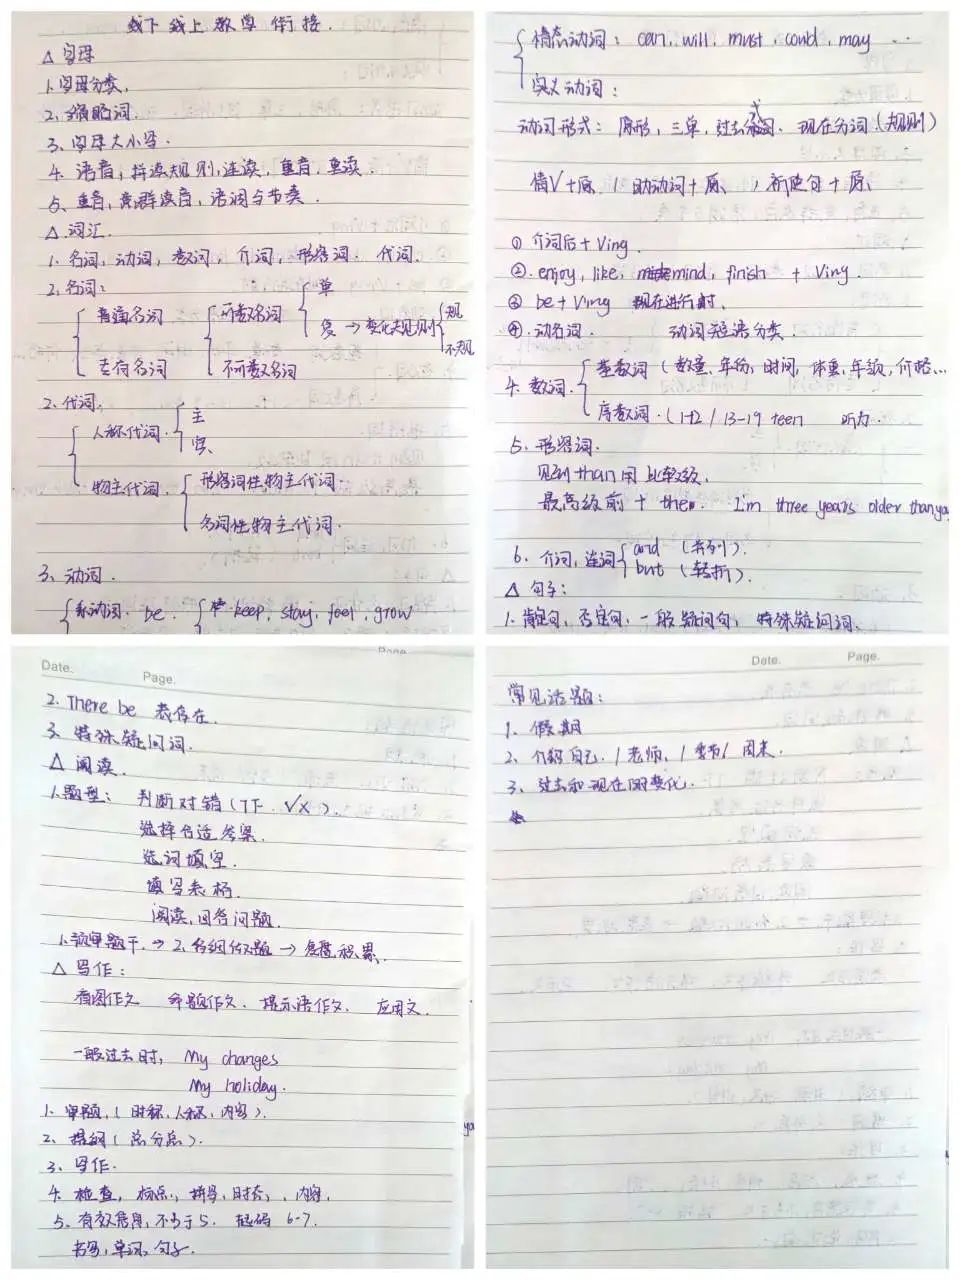 线下线上教学衔接.
△ 字母
1. 字母分类,
2. 缩略词.
3. 字母大小写.
4. 语音, 拼读规则, 连读, 重音, 重读.
5. 重音, 意群读音, 语调与节奏.
△ 词汇.
1. 名词, 动词, 数词, 介词, 形容词. 代词.
2. 名词:
普通名词 可数名词 单
复 → 变化规则 规
不规
专有名词 不可数名词
2. 代词,
人称代词. 主
宾.
物主代词. 形容词性物主代词.
名词性物主代词.
3. 动词.
系动词. be. keep, stay, feel, grow
情态动词: can, will, must, could, may ...
实义动词:
动词形式: 原形, 三单, 过去 现在分词 (规则)
情V+原、/ 助动词+原、 / 祈使句+原、
① 介词后+Ving.
②. enjoy, like, mind, finish + Ving
③ be+Ving 现在进行时.
④. 动名词. 动词短语分类.
4. 数词. 基数词 (数量、年份, 时间, 体重, 年级, 价格...
序数词. (1-12 / 13-19 teen 听力.
5. 形容词.
见到than用比较级.
最高级前 + the. I'm three years older than yo
6. 介词, 连词 and (并列).
but (转折).
△ 句子:
1. 肯定句, 否定句, 一般疑问句, 特殊疑问词.
Date. Page.
Page
2. There be 表存在.
3. 特殊疑问词.
△ 阅读.
1. 题型: 判断对错 (T F. √ X).
选择合适答案.
选词填空.
填写表格.
阅读, 回答问题.
1. 审题干. → 2. 仔细做题 → 复盘积累.
△ 写作:
看图作文 命题作文. 提示语作文. 应用文.
一般过去时, My changes
My holiday.
1. 审题, ( 时态, 人称, 内容).
2. 提纲 ( 总分总).
3. 写作.
4. 检查, 标点, 拼写, 时态, 、内容.
5. 有效信息, 不少于5. 起码 6-7.
书写, 单词, 句子.
Date. Page.
常见话题:
1. 假期
2. 介绍自己. / 老师, / 季节 / 周末.
3. 过去和现在的变化.